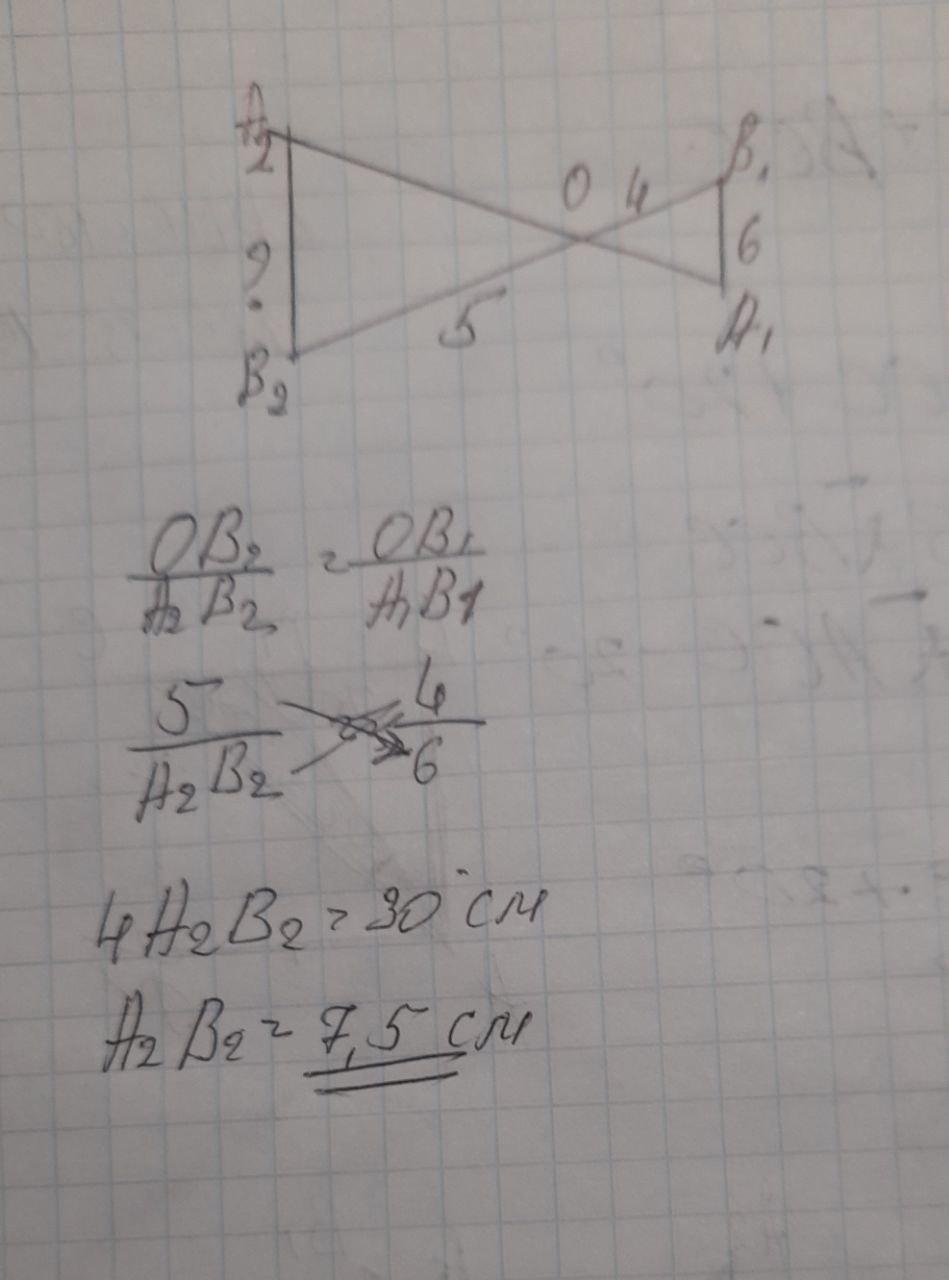 A2
B1
O 4
?
6
5
A1
B2
OB2/A2B2 = OB1/A1B1
5/A2B2 4/6
4A2B2 = 30 см
A2B2 = 7,5 см